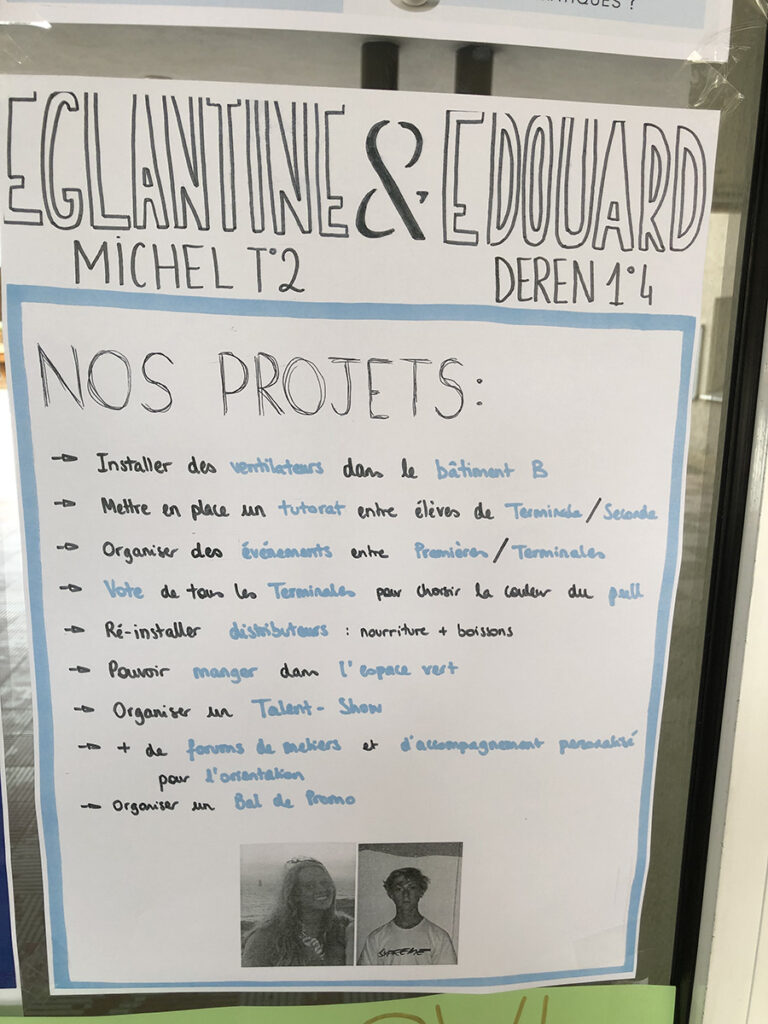 ATIQUES ?
EGLANTINE & EDOUARD
MICHEL T°2 DEREN 1°4
NOS PROJETS:
→ Installer des ventilateurs dans le bâtiment B
→ Mettre en place un tutorat entre élèves de Terminale/Seconde
→ Organiser des événements entre Premières/Terminales
→ Vote de tous les Terminales pour choisir la couleur du pull
→ Ré-installer distributeurs : nourriture + boissons
→ Pouvoir manger dans l'espace vert
→ Organiser un Talent-Show
→ + de forums de metiers et d'accompagnement personalisé
pour l'orientation
→ Organiser un Bal de Promo
SUPREME